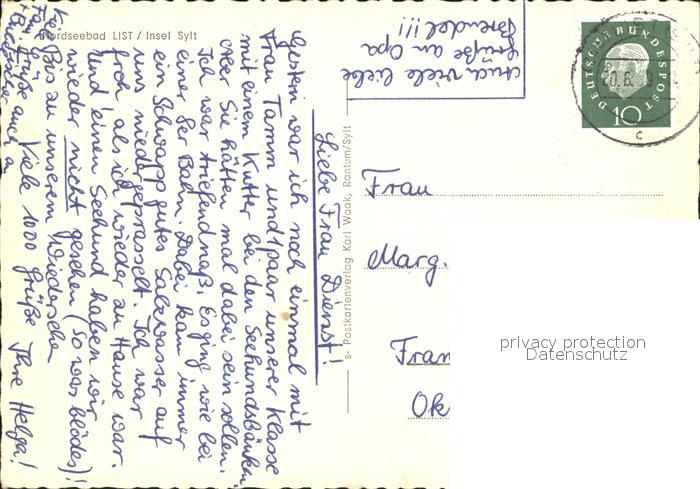 Nordseebad LIST / Insel Sylt
Liebe Frau Dienst!
Gestern war ich noch einmal mit
Frau Tamm und 1 paar unserer Klasse
mit einem Kutter bei den Seehundsbänken
Sie hätten mal dabei sein sollen.
Ich war triefendnaß. Es ging wie bei
einer Bahn. Dabei kam immer
ein Schwapp gutes Salzwasser auf
uns niedergeprasselt. Ich war
froh als ich wieder zu Hause war.
Und einen Seehund haben wir
wieder nicht gesehen (So was blödes)!
Bis zu unserem Wiedersehn
Viele 1000 Grüße Ihre Helga!
Grüße auch
Auch viele liebe
Grüße an Opa
Brendel!!!
s- Postkartenverlag Karl Waak, Rantum/Sylt
DEUTSCHE BUNDESPOST
10
c
Frau
Marg.
Fran
Ok
privacy protection
Datenschutz